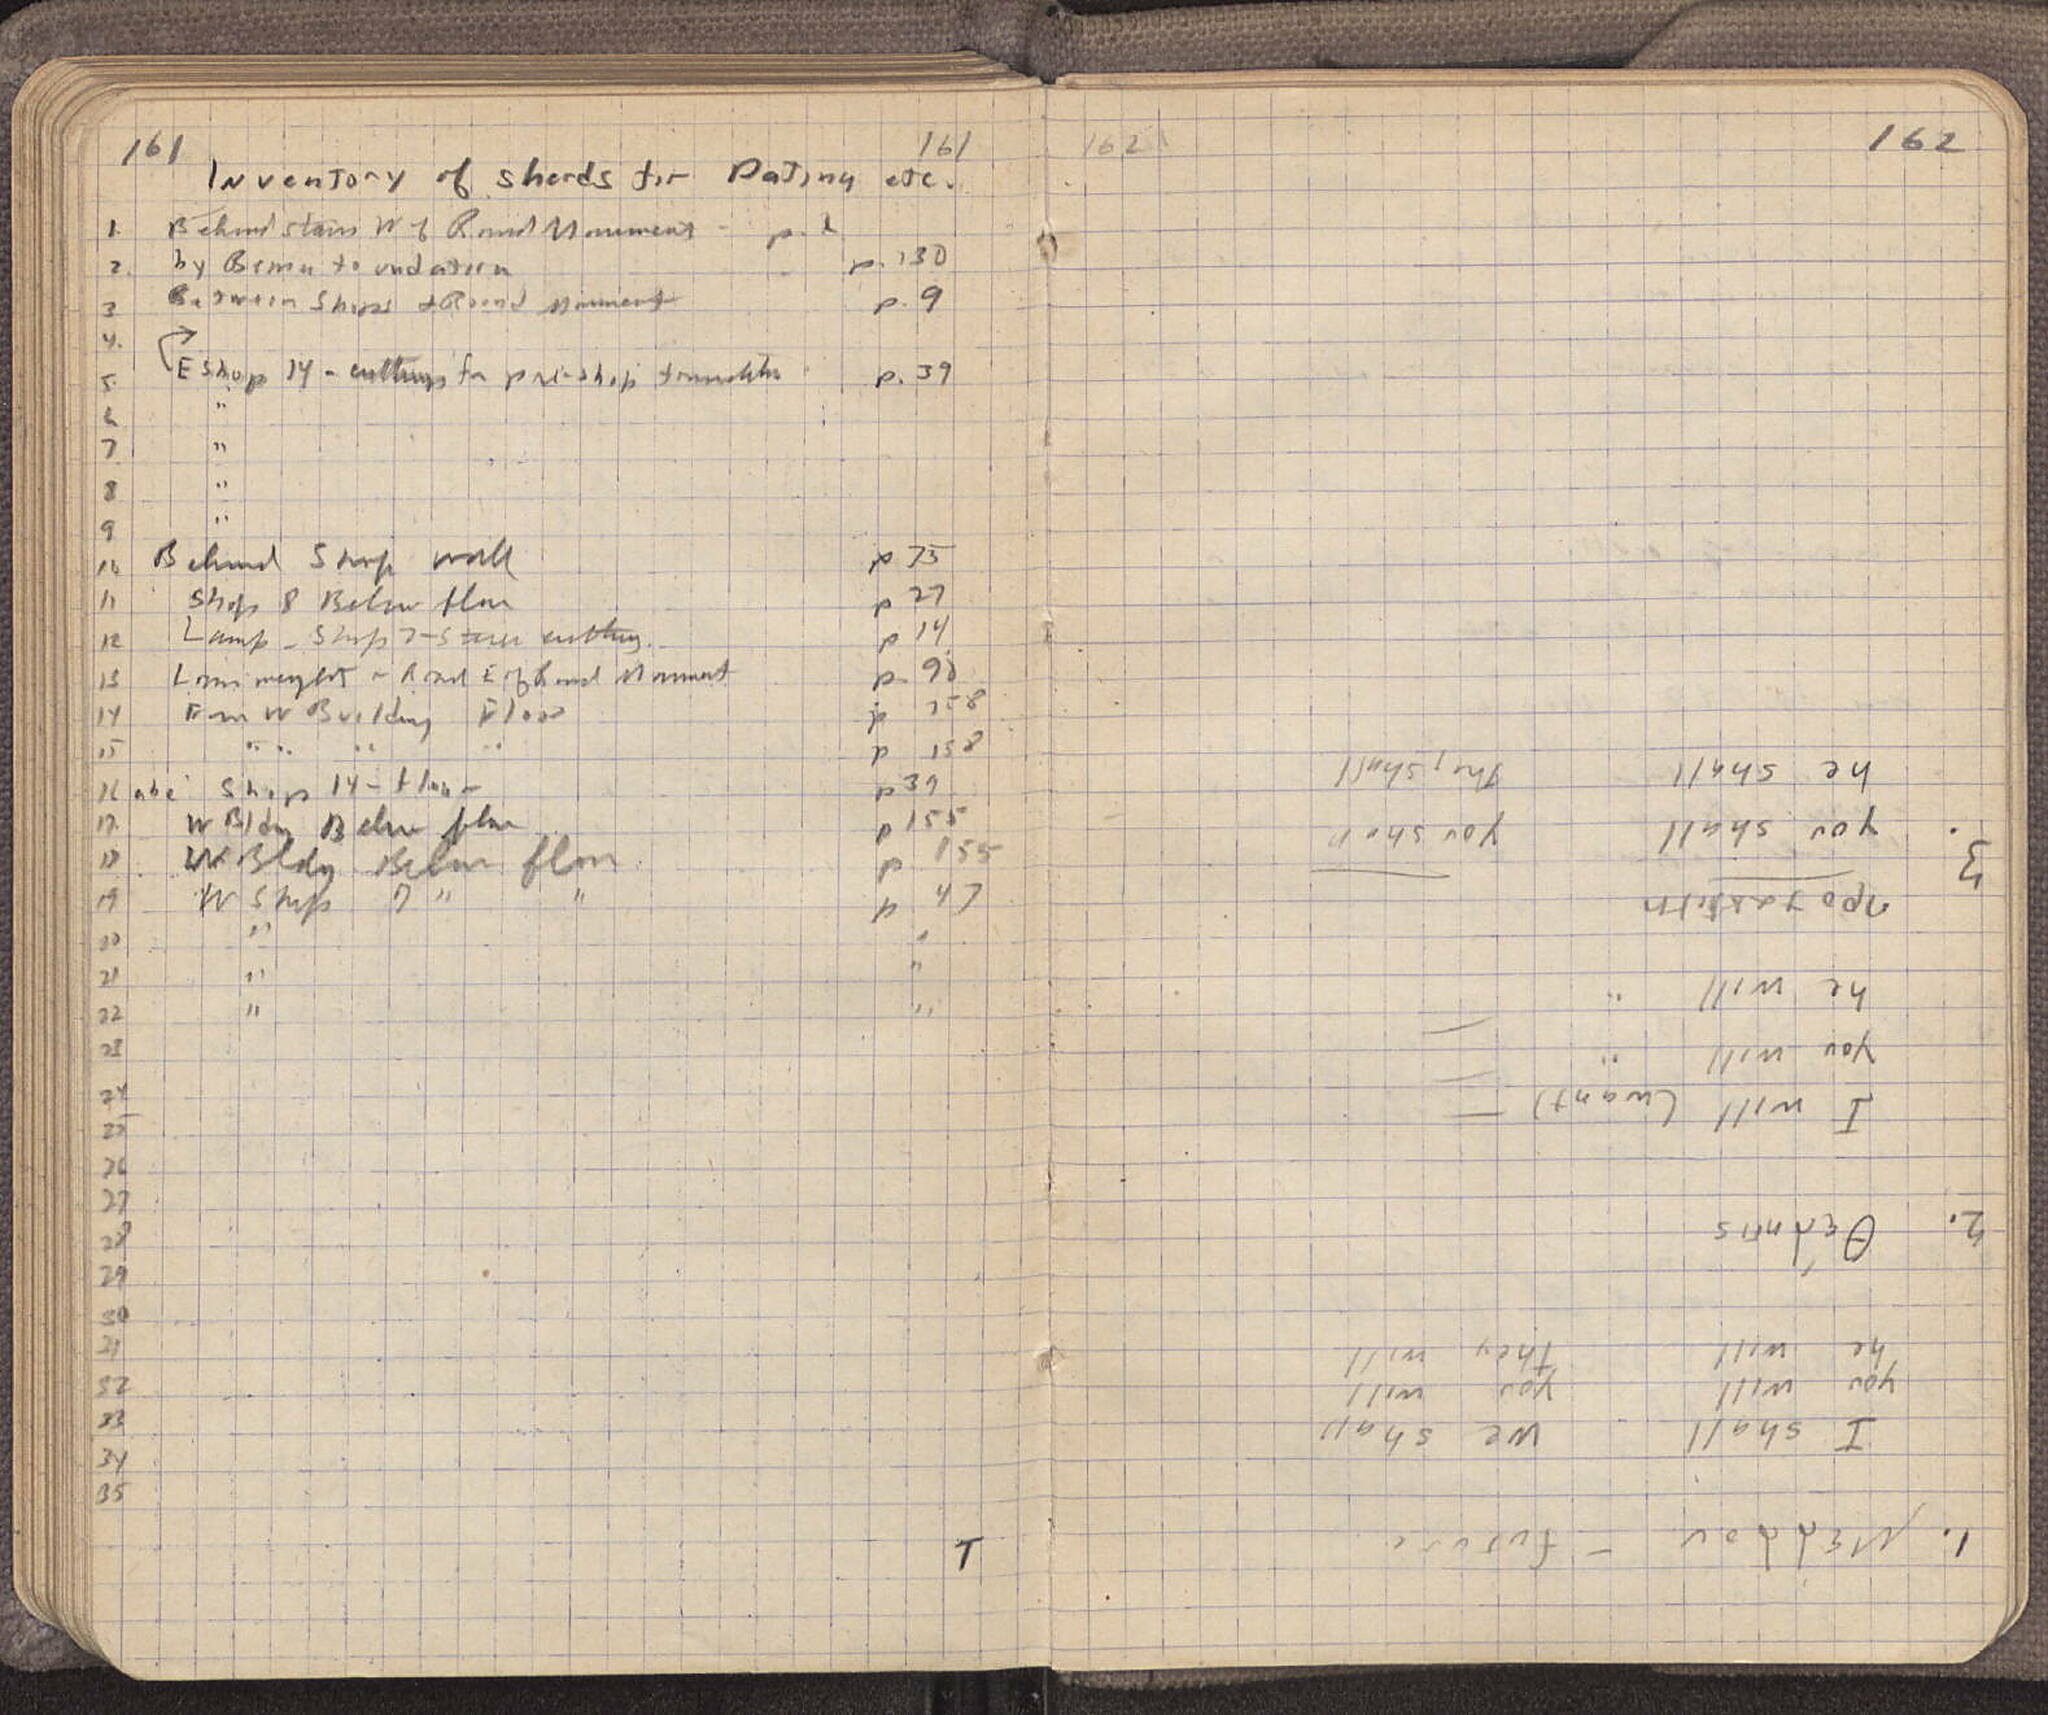 161 161
Inventory of Sherds for Dating etc.
1. Behind stairs W of Round Monument - p. 2
2. by Bema foundation p. 130
3 Between Shops & Round Monument p. 9
4.
5. E Shop 14 - cuttings for pre-shop p. 39
6 "
7 "
8 "
9 "
10 Behind Shop wall p 75
11 Shop 8 Below floor p 27
12 Lamp - Shop 7 - cutting. p 14
13 Loomweight - Road E of Round Monument p. 98
14 From W Building Floor p 158
15 " " " " p 158
16 abc Shop 14 - floor p 39
17. W Bldg Below floor p 155
18 W Bldg Below floor p 155
19 W Shop 7 " " p 47
20 " "
21 " "
22 " "
23
24
25
26
27
28
29
30
31
32
33
34
35
T
162 162
1. Μέλλου - future
I shall we shall
you will you will
he will they will
2. Θέλησις
I will (want) —
you will " —
he will " —
3. προσταχτικη
you shall you shall
he shall they shall